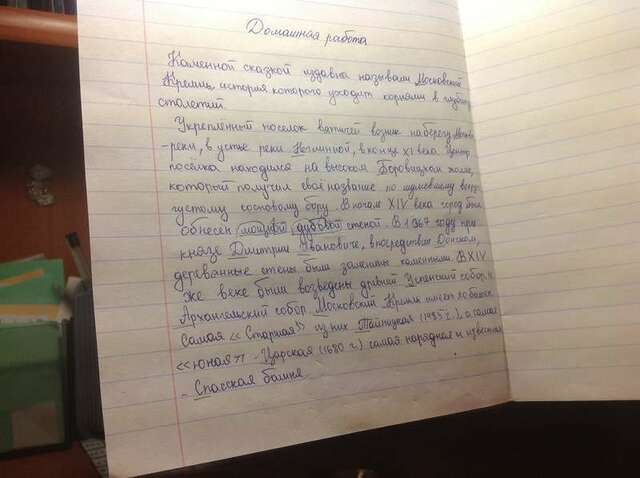 Домашная работа
Каменной сказкой издавна называли Московский
Кремль, история которого уходить корнями в глубь
столетий
Укреплённый поселок вятичей возник на берегу Москвы
-реки, в устье реки Неглинной, в конце XI века. Центр
посёлка находился на высоком Боровицком холме,
который получил своё название по шумевшему вокруг
густому сосновому бору. В начале XIV века город был
обнесен мощной дубовой стеной. В 1367 году при
князе Димитрии Ивановиче, впоследствии Донском,
деревянные стены были заменены каменными. В XIV
же веке были возведены древний Успенский собор и
Архангельский собор. Московский Кремль имеет 20 башен.
Самая << Старшая>> из них Тайницкая (1485 г.), а самая
<<юная>> - Царская (1680 г.) самая нарядная и известная
- Спасская башня